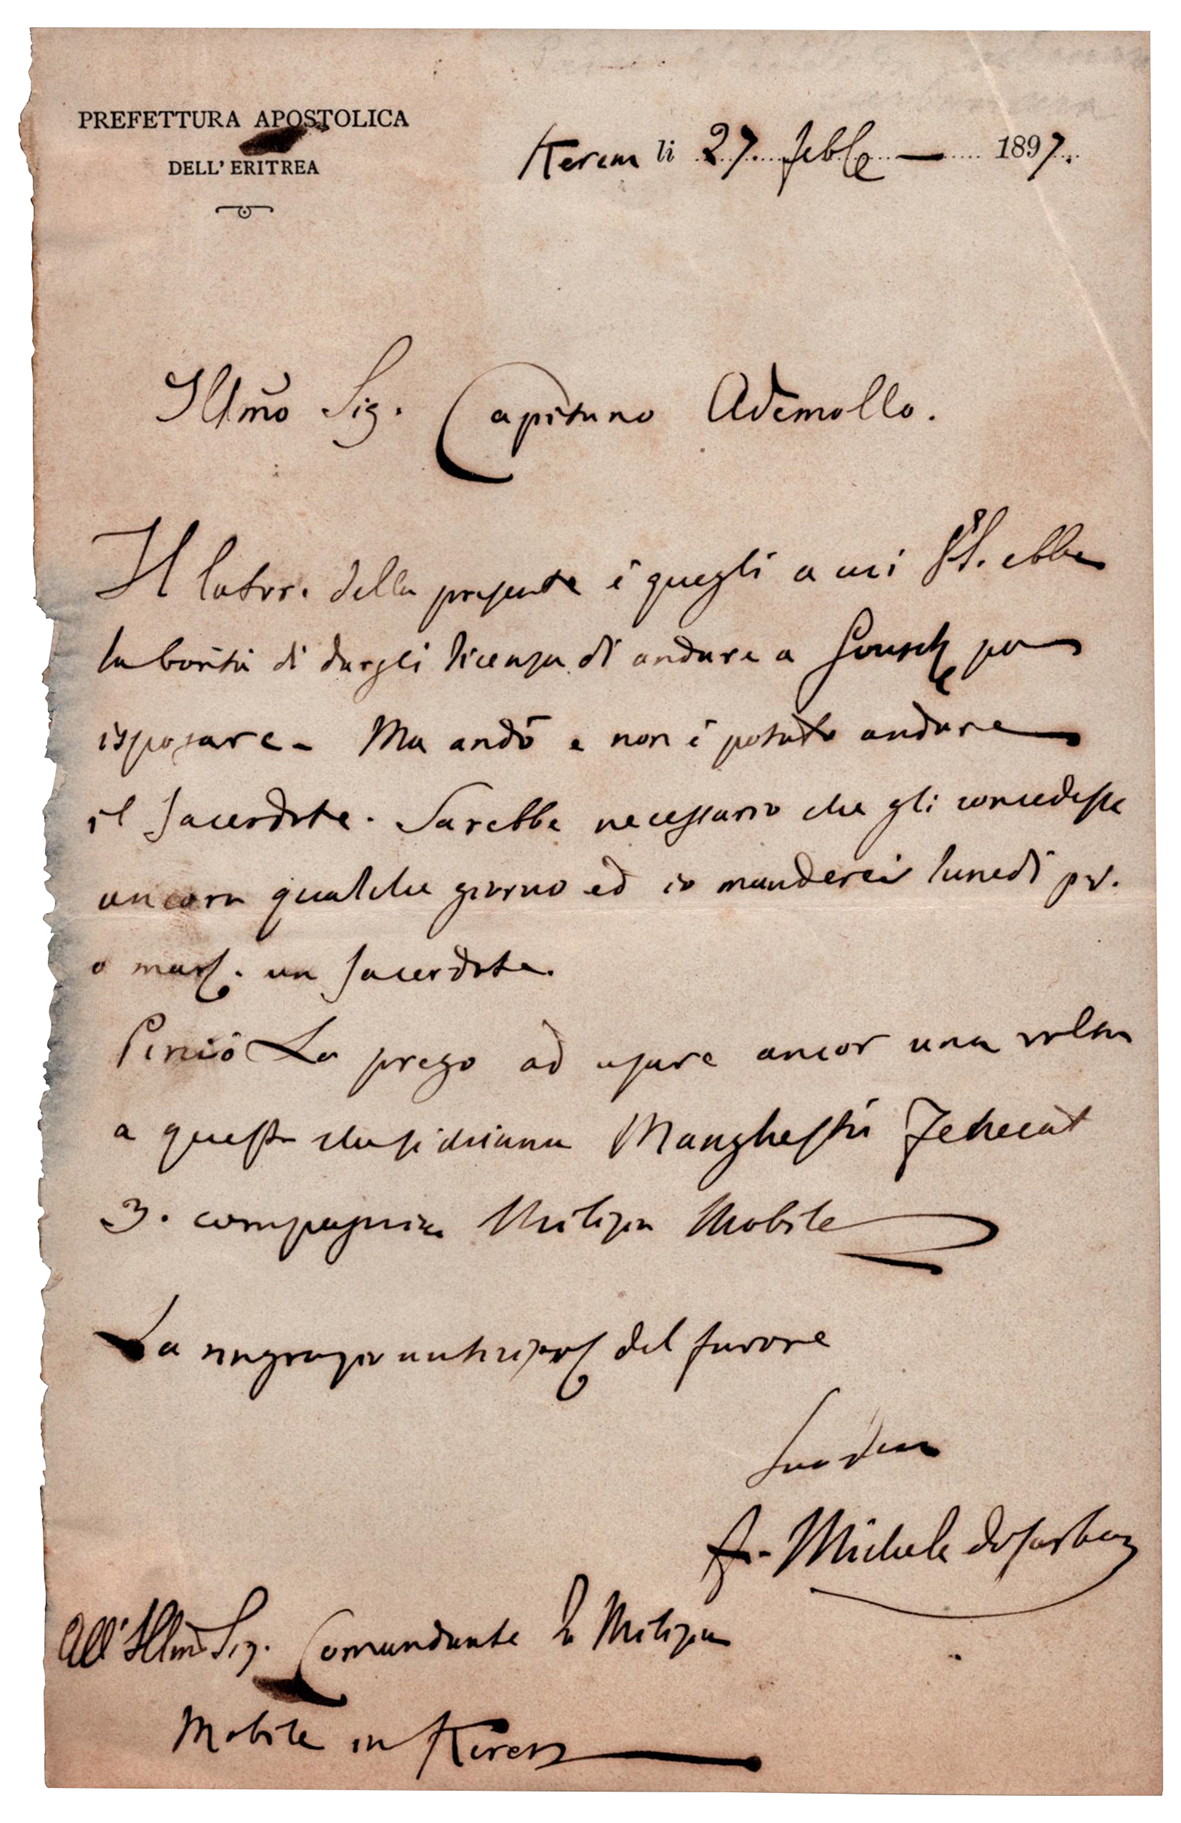 PREFETTURA APOSTOLICA
DELL' ERITREA
Keren li 27. Febb 1897.
Illmo Sig. Capitano Ademollo.
Il lator. della presente è quegli a cui ebbe
la bontà di dargli licenza di andare a per
isposare - Ma andò e non è potuto andare
il Sacerdote. Sarebbe necessario che gli concedesse
ancora qualche giorno ed io manderei lunedì pr.
o mart. un Sacerdote.
Perciò La prego ad usare ancor una volta
a questo Manghestù
3. compagnia Milizia Mobile
La ringrazio del favore
Suo
F. Michele da Carbonara
All' Illmo Sig. Comandante la Milizia
Mobile in Keren